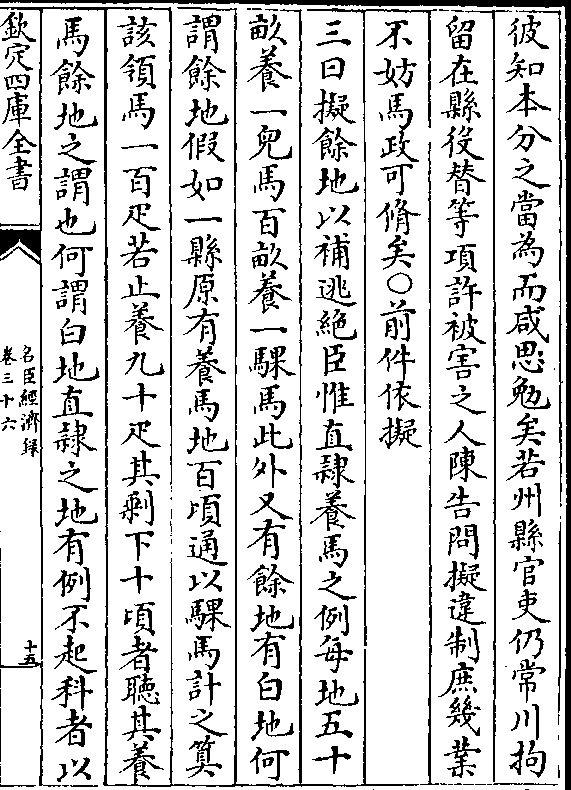 彼知本分之當為而咸思勉矣若州縣官吏仍常川拘
留在縣役替等項許被害之人陳告問擬違制庶幾業
不妨馬政可脩矣○前件依擬
三曰擬餘地以補逃絶臣惟直𨽻養馬之例每地五十
畝養一兒馬百畝養一騍馬此外又有餘地有白地何
謂餘地假如一縣原有養馬地百頃通以騍馬計之算
該領馬一百疋若止養九十疋其剩下十頃者聽其養
馬餘地之謂也何謂白地直𨽻之地有例不起科者以
欽定四庫全書
名臣經濟録
卷三十六
十五